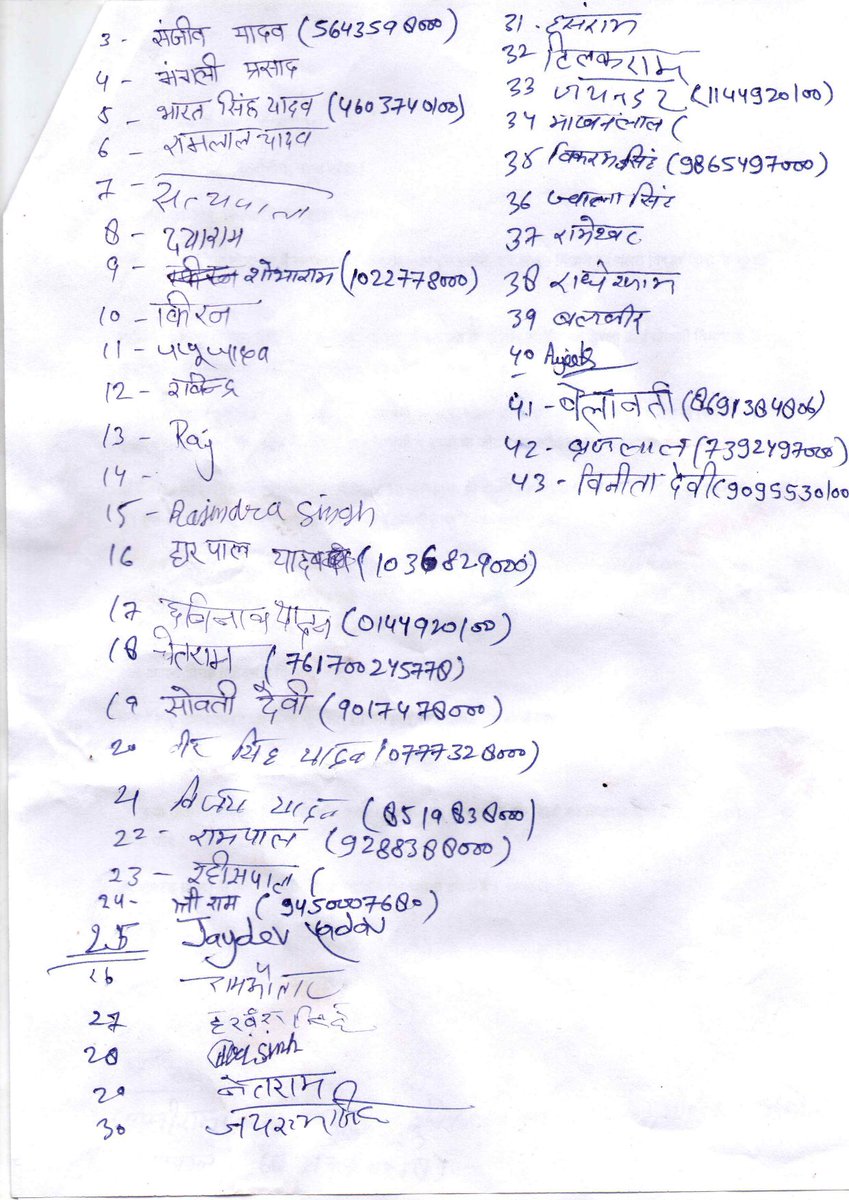 3 - संजीव यादव (5643598000)
4 - मंगली प्रसाद
5 - भारत सिंह यादव (4603740100)
6 - रामलाल यादव
7 - सत्यपाल
8 - दयाराम
9 - शोभाराम (1022778000)
10 - किरन
11 -
12 - रविन्द्र
13 - Raj
14 -
15 - Rajindra Singh
16 हरपाल यादव (1036829000)
17 यादव (0144920100)
18 चेतराम (761700245778)
19 सोवती देवी (9017478000)
20 सिंह यादव (0777328000)
21 विजय यादव (8519838000)
22 - रामपाल (9288388000)
23 - रहीसपाल (
24 - श्री राम (9450007680)
25 Jaydev Yadav
26 रामऔतार
27 हरवंश सिंह
28
29 नेतराम
30
31 - हंसराम
32 टिलकराम
33 (1144920100)
34 माखनलाल (
35 विकरम सिंह (9865497000)
36 ज्वाला सिंह
37 रामेश्वर
38 राधेश्याम
39 बलवीर
40 Ajeet
41 - बेलावती (8691384806)
42 - ब्रजलाल (7392497000)
43 - विनीता देवी (9095530100